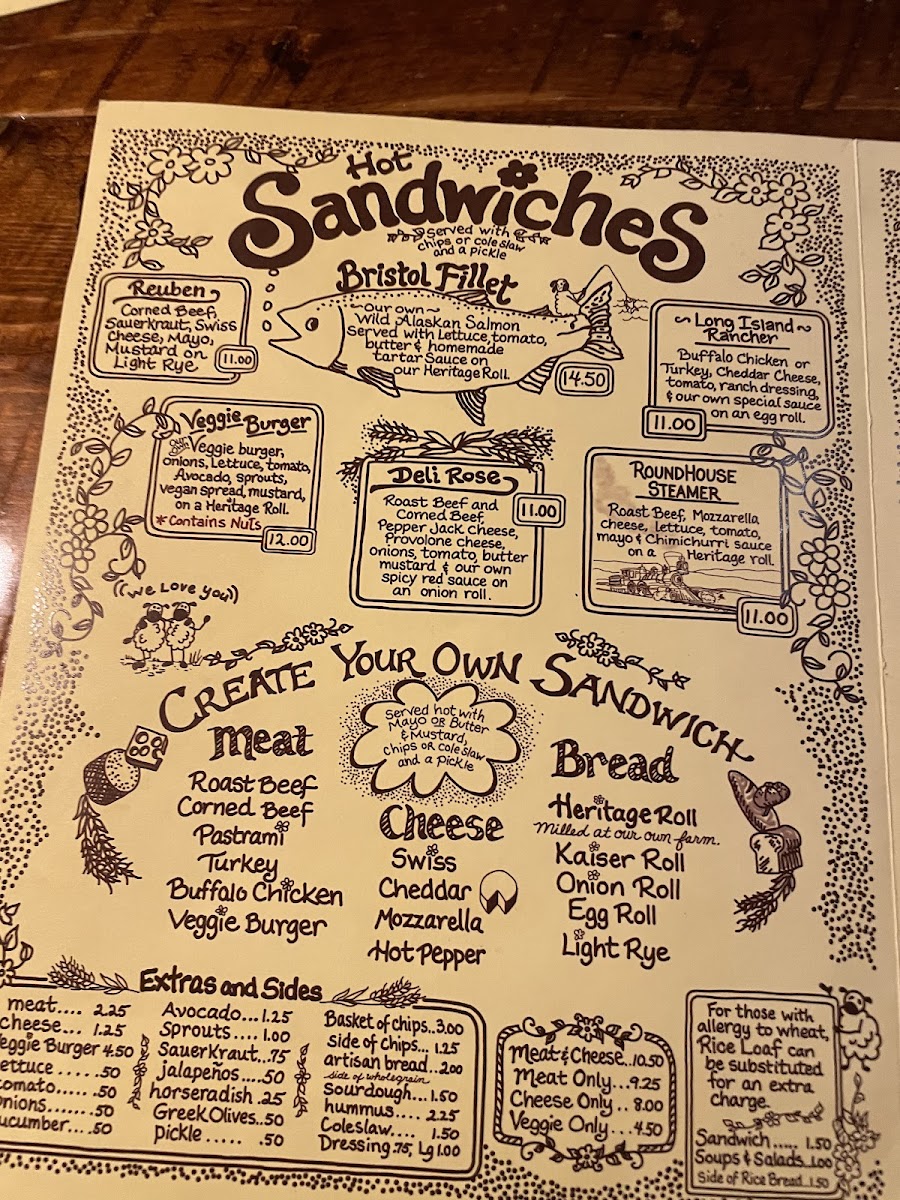 Hot
Sandwiches
Served with
chips or cole slaw
and a pickle
Reuben
Corned Beef,
Sauerkraut, Swiss
Cheese, Mayo,
Mustard on
Light Rye
11.00
Bristol Fillet
our own
Wild Alaskan Salmon
Served with Lettuce, tomato,
butter & homemade
tartar Sauce on
our Heritage Roll.
14.50
Long Island
Rancher
Buffalo Chicken or
Turkey, Cheddar Cheese,
tomato, ranch dressing,
& our own special sauce
on an egg roll.
11.00
Veggie Burger
our own Veggie burger,
onions, Lettuce, tomato,
Avocado, sprouts,
vegan spread, mustard,
on a Heritage Roll.
*Contains Nuts
12.00
Deli Rose
Roast Beef and
Corned Beef,
Pepper Jack Cheese,
Provolone cheese,
onions, tomato, butter
mustard & our own
spicy red sauce on
an onion roll.
11.00
RoundHouse
Steamer
Roast Beef, Mozzarella
cheese, lettuce, tomato,
mayo & Chimichurri sauce
on a Heritage roll.
11.00
((We Love you))
Create Your Own Sandwich
Served hot with
Mayo OR Butter
& Mustard,
Chips OR cole slaw
and a pickle
Meat
Roast Beef
Corned Beef
Pastrami
Turkey
Buffalo Chicken
Veggie Burger
Cheese
Swiss
Cheddar
Mozzarella
Hot Pepper
Bread
Heritage Roll
Milled at our own farm.
Kaiser Roll
Onion Roll
Egg Roll
Light Rye
Extras and Sides
meat.... 2.25
cheese... 1.25
eggie Burger 4.50
ettuce ..... .50
omato..... .50
nions....... .50
ucumber.... .50
Avocado... 1.25
Sprouts .... 1.00
Sauerkraut... .75
jalapeños.... .50
horseradish .25
Greek Olives.. .50
pickle ..... .50
Basket of chips.. 3.00
side of chips... 1.25
artisan bread.. 2.00
side of wholegrain
Sourdough... 1.50
hummus.... 2.25
Coleslaw.... 1.50
Dressing .75, Lg 1.00
Meat & Cheese.. 10.50
Meat Only... 9.25
Cheese Only.. 8.00
Veggie Only... 4.50
For those with
allergy to wheat,
Rice Loaf can
be substituted
for an extra
charge.
Sandwich ..... 1.50
Soups & Salads.. 1.00
Side of Rice Bread.. 1.50